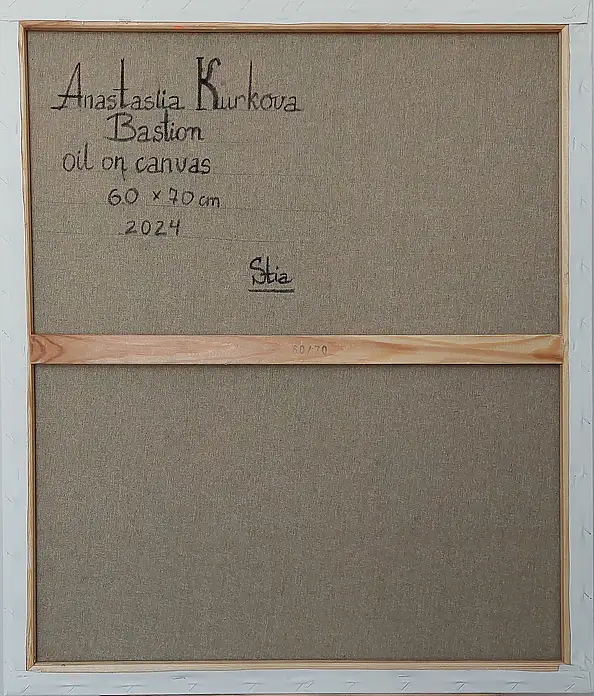 Anastasiia Kurkova
Bastion
oil on canvas
60 × 70 cm
2024
Stia
60/70